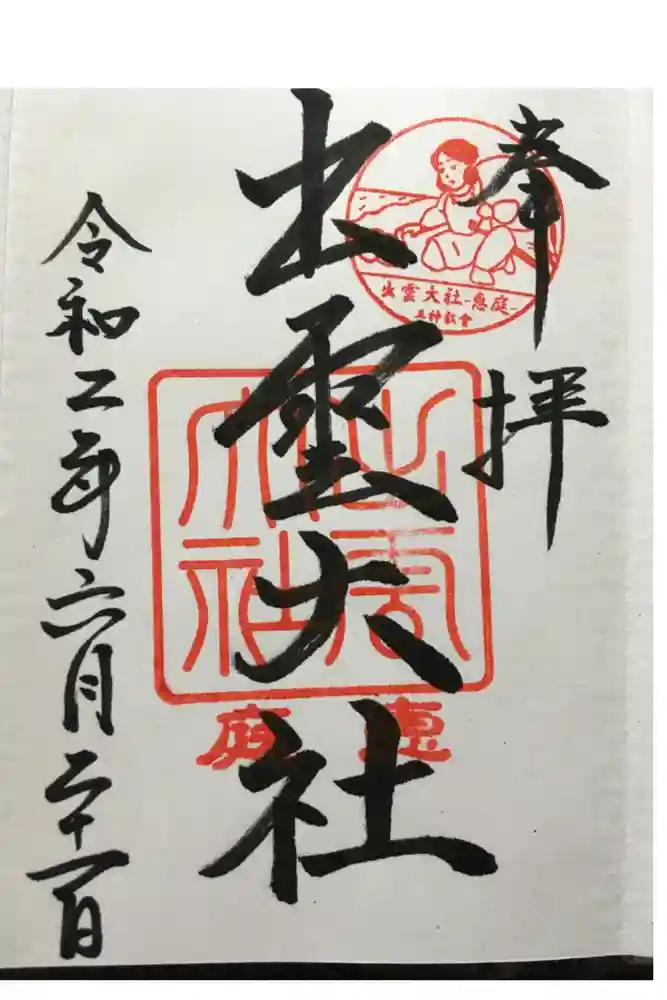 奉拝
出雲大社-恵庭-
三神教會
出雲大社
出雲
大社
恵庭
令和二年六月二十一日